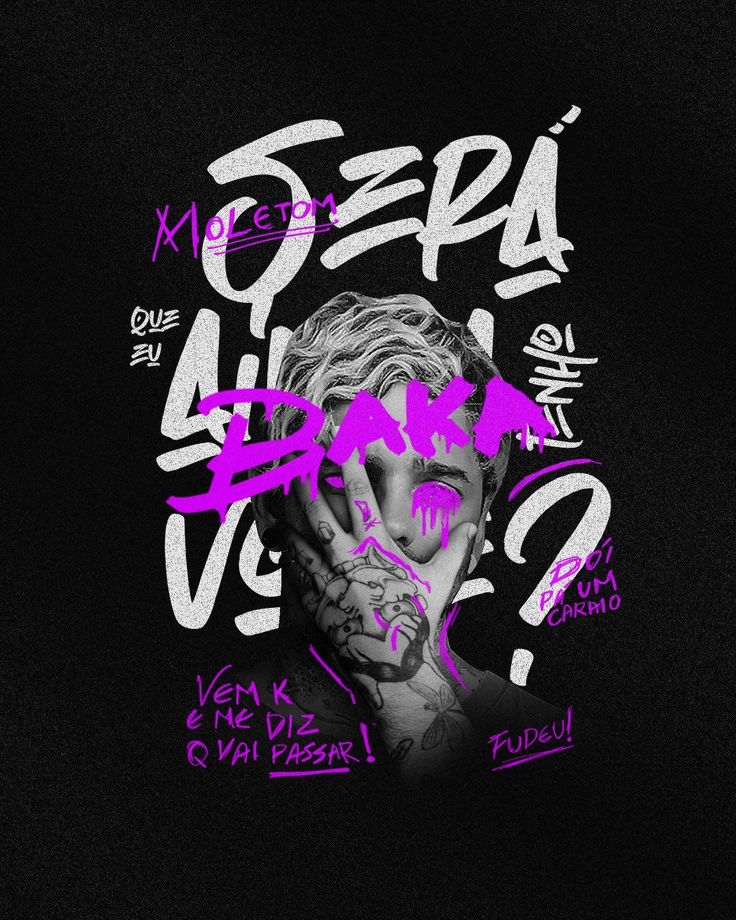 SERÁ
MOLETOM
QUE
EU
TENHO
BAKA
DOÍ
PA UM
CARAIO
VEM K
E ME DIZ
Q VAI PASSAR!
FUDEU!